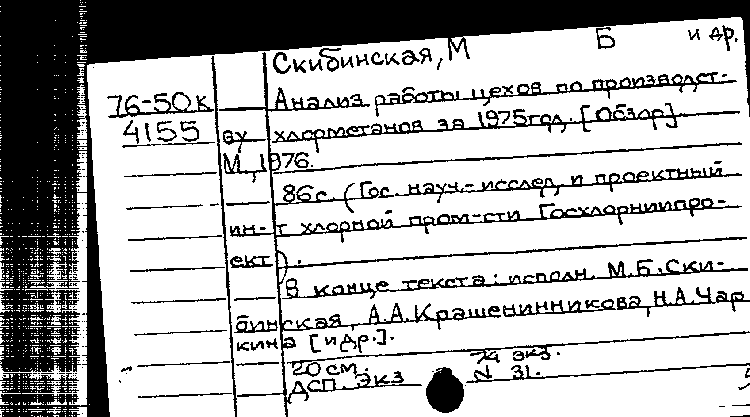 Скибинская, М Б и др.
76-50к Анализ работы цехов по производст-
4155 ву хлорметанов за 1975год. [Обзор].
М., 1976.
86с. (Гос. науч.-исслед. и проектный
ин-т хлорной пром-сти Госхлорниипро-
ект).
В конце текста: исполн. М.Б. Ски-
бинская, А.А. Крашенинникова, Н.А. Чар
кина [и др.].
20 см. 74 экз.
ДСП. Экз N 31.